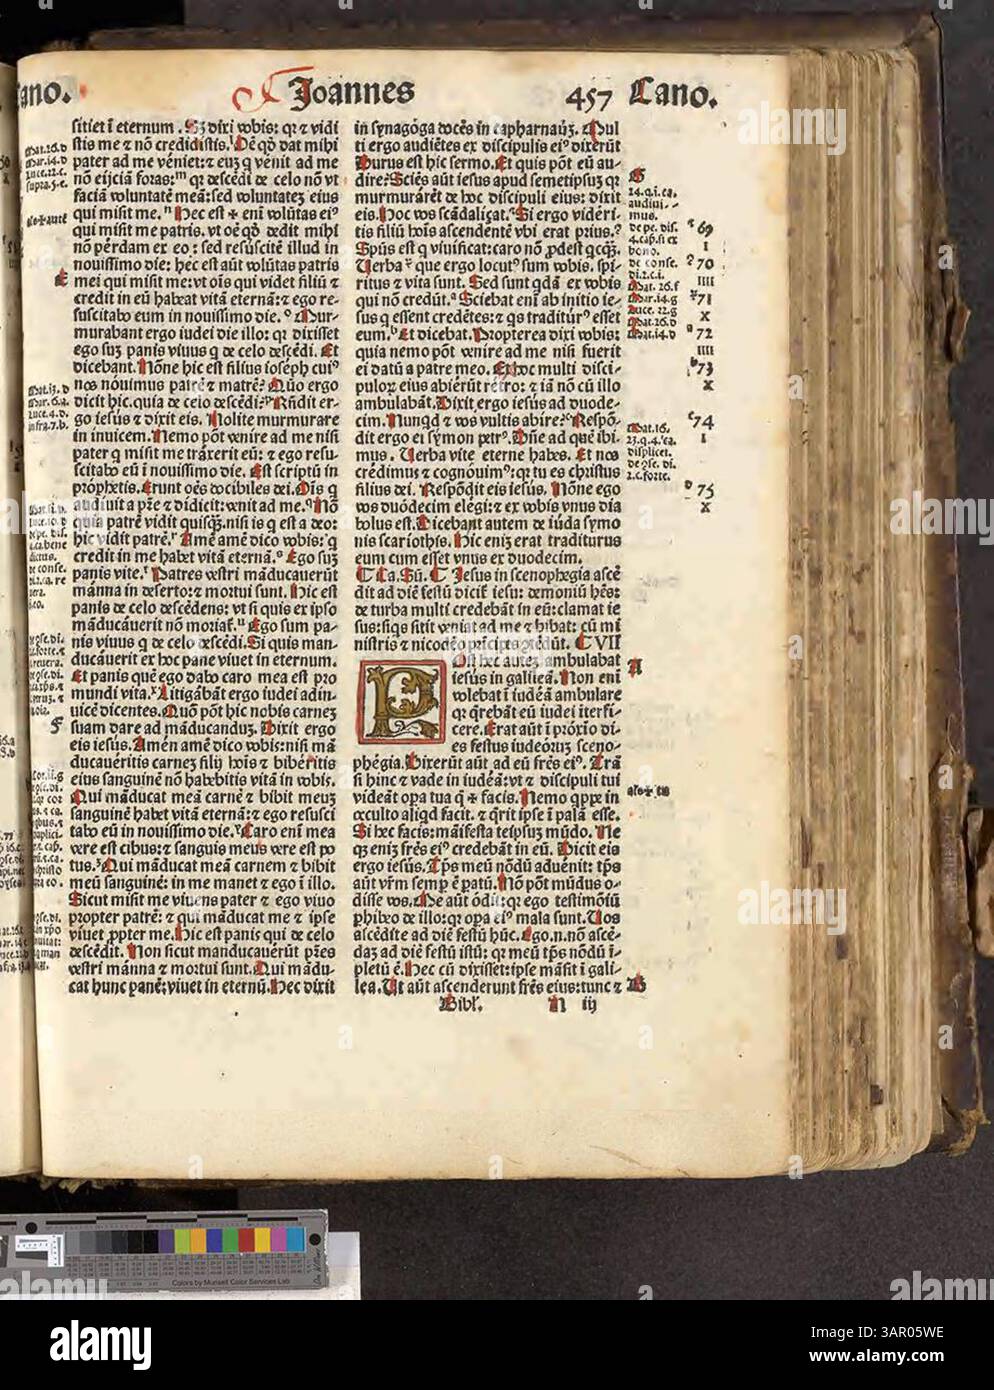 ano.
Joannes
457 Cano.
sitiet ī eternum. Sȝ dixi vobis: qr ⁊ vidi
stis me ⁊ nō credidistis. Oē qd dat mihi
pater ad me véniet: ⁊ euȝ q venit ad me
nō eijciā foras: qr descēdi de celo nō vt
faciā voluntatē meā: sed voluntateȝ eius
qui misit me. Hec est enī volūtas ei⁹
qui misit me patris. vt oē qd dedit mihi
nō pérdam ex eo: sed resuscitē illud in
nouissimo die: hec est aūt volūtas patris
mei qui misit me: vt oīs qui videt filiū ⁊
credit in eū habeat vitā eternā: ⁊ ego re-
suscitabo eum in nouissimo die. Mur-
murabant ergo iudei die illo: qr dixisset
ego suȝ panis viuus q de celo descēdi. Et
dicebant. Nōne hic est filius ioseph cui⁹
nos nóuimus patrē ⁊ matrē? Quō ergo
dicit hic. quia de celo descēdi? Rn̄dit er-
go iesus ⁊ dixit eis. Nolite murmurare
in inuicem. Nemo pōt venire ad me nisi
pater q misit me tráxerit eū: ⁊ ego resu-
scitabo eū ī nouissimo die. Est scriptū in
próphetis. Erunt oēs docibiles dei. Oīs q
audiuit a pr̄e ⁊ didicit: venit ad me. Nō
quia patrē vidit quisqȝ. nisi is q est a deo:
hic vidit patrē. Amē amē dico vobis: q
credit in me habet vitā eternā. Ego suȝ
panis vite. Patres vestri māducauerūt
manna in deserto: ⁊ mortui sunt. Hic est
panis de celo descēdens: vt si quis ex ipso
māducáuerit nō moriat. Ego sum pa-
nis viuus q de celo descēdi. Si quis man-
ducáuerit ex hoc pane viuet in eternum.
Et panis quē ego dabo caro mea est pro
mundi vita. Litigábāt ergo iudei adin-
uicē dicentes. Quō pōt hic nobis carneȝ
suam dare ad māducanduȝ. Dixit ergo
eis iesus. Amēn amē dico vobis: nisi mā
ducauéritis carneȝ filij hoīs ⁊ bibéritis
eius sanguinē nō habebitis vitā in vobis.
Qui māducat meā carnē ⁊ bibit meuȝ
sanguinē habet vitā eternā: ⁊ ego resusci
tabo eū in nouissimo die. Caro enī mea
vere est cibus: ⁊ sanguis meus vere est po
tus. Qui māducat meā carnem ⁊ bibit
meū sanguinē: in me manet ⁊ ego ī illo.
Sicut misit me viuens pater ⁊ ego viuo
propter patrē: ⁊ qui māducat me ⁊ ipse
viuet ꝓpter me. Hic est panis qui de celo
descēdit. Non sicut manducauērūt pr̄es
vestri mānna ⁊ mortui sunt. Qui mādu-
cat hunc panē: viuet in eternū. Hec dixit
in synagóga docēs in capharnaūȝ. Mul
ti ergo audiētes ex discipulis ei⁹ dixerūt
Durus est hic sermo. Et quis pōt eū au-
dire? Sciēs aūt iesus apud semetipsuȝ qr
murmurárēt de hoc discipuli eius: dixit
eis. Hoc vos scādaliçat. Si ergo vidéri-
tis filiū hoīs ascendentē vbi erat prius?
Spūs est q viuificat: caro nō ꝓdest qcqȝ.
Verba que ergo locut⁹ sum vobis. spi-
ritus ⁊ vita sunt. Sed sunt qdā ex vobis
qui nō credūt. Sciebat enī ab initio ie-
sus q essent credētes: ⁊ qs traditur⁹ esset
eum. Et dicebat. Propterea dixi vobis:
quia nemo pōt venire ad me nisi fuerit
ei datū a patre meo. Ex hoc multi disci-
puloꝝ eius abiérūt rétro: ⁊ iā nō cū illo
ambulabāt. Dixit ergo iesus ad duode-
cim. Nunqd ⁊ vos vultis abire? Respō-
dit ergo ei symon petr⁹. Dn̄e ad quē ibi-
mus. Verba vite eterne habes. Et nos
crédimus ⁊ cognóuim⁹: qr tu es christus
filius dei. Respōdit eis iesus. Nōne ego
vos duódecim elégi: ⁊ ex vobis vnus dia
bolus est. Dicebant autem de iúda symo
nis scariothis. Hic eniȝ erat traditurus
eum cum esset vnus ex duodecim.
Ca. Sū. Jesus in scenophegia ascē
dit ad diē festū dicit iesu: demoniū hēs:
de turba multi credebāt in eū: clamat ie
sus: siqs sitit veniat ad me ⁊ bibat: cū mi
nistris ⁊ nicodēo CVII
Ost hec auteȝ ambulabat
iesus in galileā. Non enī
volebat ī iudeā ambulare
qr qrēbāt eū iudei īterfi-
cere. Erat aūt ī próxīo di-
es festus iudeoruȝ sceno-
phégia. Dixerūt aūt ad eū frēs ei⁹. Trā
si hinc ⁊ vade in iudēā: vt ⁊ discipuli tui
videāt opa tua q facis. Nemo qppe in
occulto aliqd facit. ⁊ qrit ipse ī palā esse.
Si hec facis: māifesta teipsuȝ mūdo. Ne
qȝ eniȝ frēs ei⁹ credebāt in eū. Dicit eis
ergo iesus. Tps meū nōdū aduēnit: tps
aūt vrm semp ē patū. Nō pōt mūdus o-
disse vos. Me aūt ódit: qr ego testimōiū
phibeo de illo: qr opa ei⁹ mala sunt. Vos
ascēdite ad diē festū hūc. Ego.n.nō ascē-
daȝ ad diē festū istū: qr meū tps nōdū ī-
pletū ē. Hec cū dixisset: ipse māsit ī gali-
lea. Ut aūt ascenderunt frēs eius: tunc ⁊
Bibl. N iij
G
69
70
71
72
73
74
75
A
B
Colors by Munsell Color Services Lab
alamy
Image ID: 3AR05WE
www.alamy.com